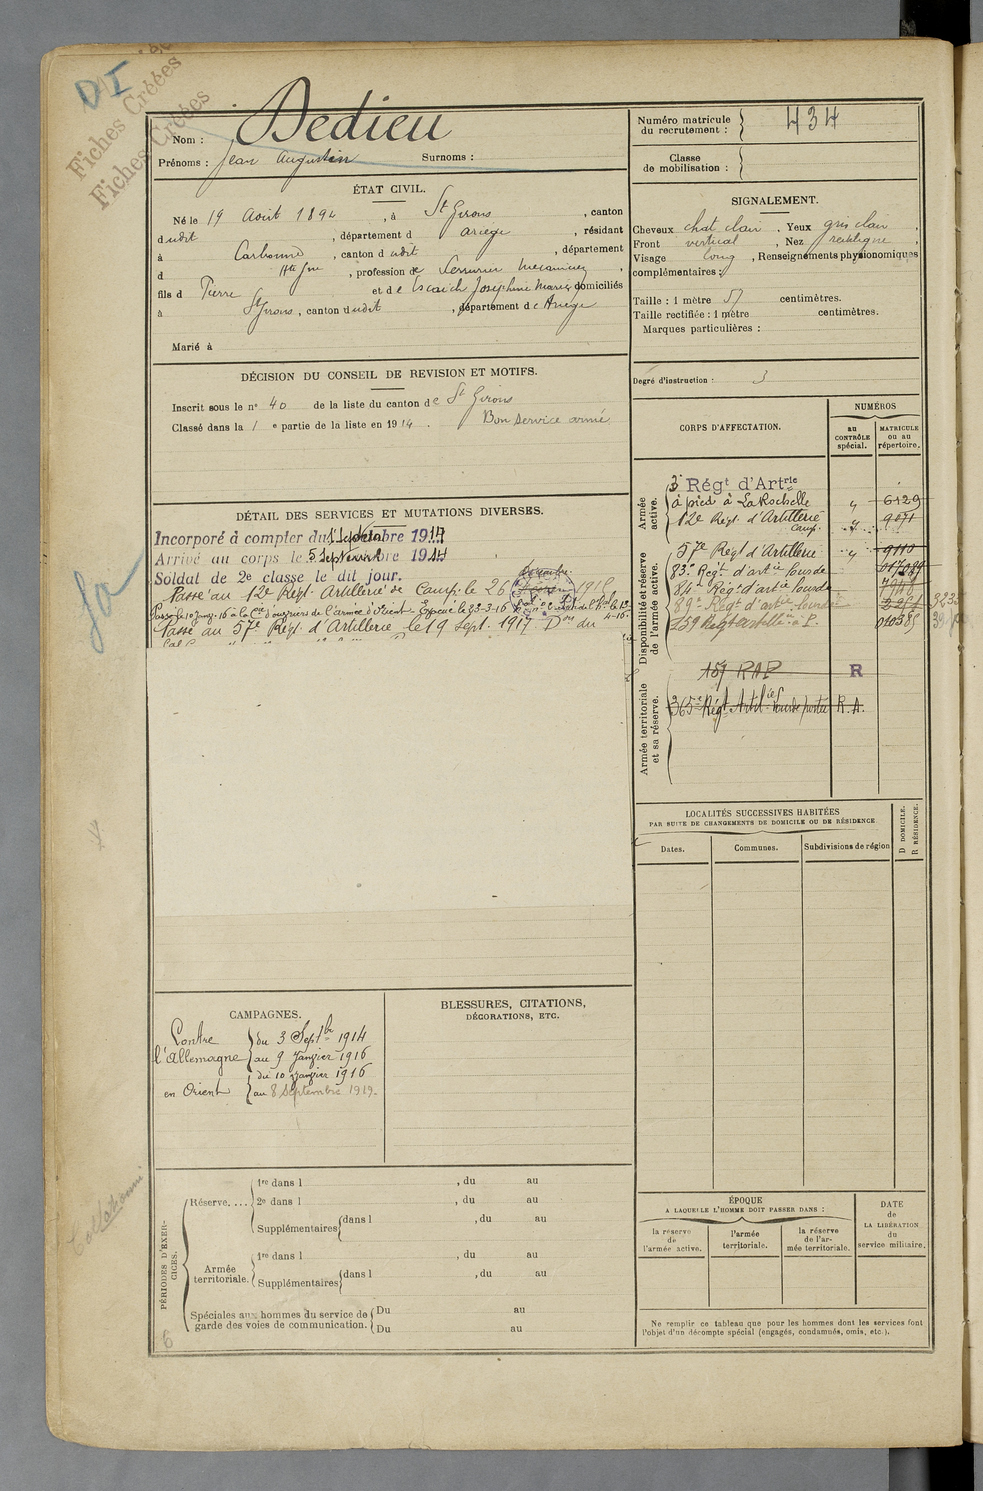 DI
Fiches Créées
Fiches Créées
Nom : Dedieu
Prénoms : Jean Augustin Surnoms :
Numéro matricule du recrutement : 434
Classe de mobilisation :
ÉTAT CIVIL.
Né le 19 Août 1894, à St Girons, canton
dudit, département d ariège, résidant
à Carbonne, canton d udit, département
d Hte Gne, profession de Serrurier mecanicien,
fils d Pierre et de Escaich Josephine Marie domiciliés
à St Girons, canton dudit, département de Ariège
Marié à
SIGNALEMENT.
Cheveux chat clair, Yeux gris clair,
Front vertical, Nez rectiligne,
Visage long, Renseignements physionomiques
complémentaires :
Taille : 1 mètre 57 centimètres.
Taille rectifiée : 1 mètre centimètres.
Marques particulières :
Degré d'instruction : 3
DÉCISION DU CONSEIL DE REVISION ET MOTIFS.
Inscrit sous le n° 40 de la liste du canton de St Girons
Classé dans la 1 e partie de la liste en 1914. Bon service armé
DÉTAIL DES SERVICES ET MUTATIONS DIVERSES.
Incorporé à compter du
Arrivé au corps le 5 Septembre 1914
Soldat de 2e classe le dit jour.
Passé au 12e Régt Artillerie de Camp. le 26 1915
Passé le 10 janv. 16 à la Cie d'ouvriers de l'armée d'Orient
Passé au 57e Régt d'Artillerie le 19 Sept. 1917 Don du
CORPS D'AFFECTATION.
NUMÉROS
au CONTRÔLE spécial.
MATRICULE ou au répertoire.
Armée active.
3e Régt d'Artrie
à pied à La Rochelle " 6129
12e Régt d'Artillerie Camp. " 9171
Disponibilité et réserve de l'armée active.
57e Régt d'Artillerie " 9110
83e Régt d'artie lourde
84e Régt d'artie lourde
89e Régt d'artie lourde
159 Régt artillie à P.
Armée territoriale et sa réserve.
157 RAP R
365e Régt Artil. lourde portée R.A.
LOCALITÉS SUCCESSIVES HABITÉES
PAR SUITE DE CHANGEMENTS DE DOMICILE OU DE RÉSIDENCE.
Dates. Communes. Subdivisions de région
D DOMICILE.
R RÉSIDENCE.
CAMPAGNES.
Contre l'Allemagne du 3 Septbre 1914
au 9 Janvier 1916
en Orient du 10 Janvier 1916
au 8 Septembre 1919.
BLESSURES, CITATIONS,
DÉCORATIONS, ETC.
PÉRIODES D'EXERCICES.
Réserve....
1re dans l , du au
2e dans l , du au
Supplémentaires dans l , du au
dans l , du au
Armée territoriale.
1re dans l , du au
Supplémentaires dans l , du au
dans l , du au
Spéciales aux hommes du service de garde des voies de communication.
Du au
Du au
ÉPOQUE
A LAQUELLE L'HOMME DOIT PASSER DANS :
la réserve de l'armée active.
l'armée territoriale.
la réserve de l'armée territoriale.
DATE de LA LIBÉRATION du service militaire.
Ne remplir ce tableau que pour les hommes dont les services font
l'objet d'un décompte spécial (engagés, condamnés, omis, etc.).
6